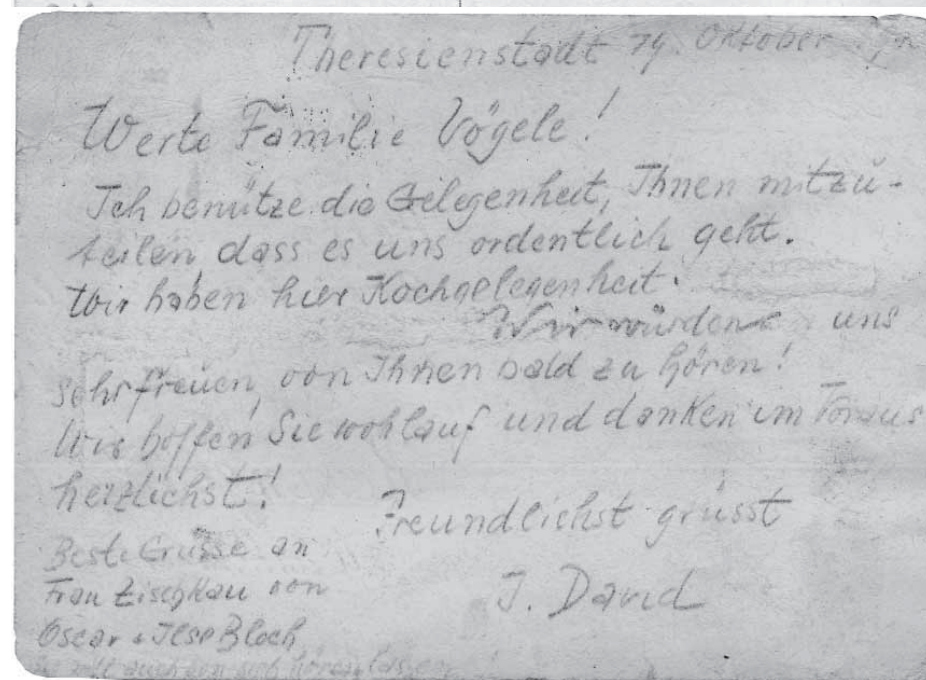 Theresienstadt 14. Oktober
Werte Familie Vögele!
Ich benütze die Gelegenheit, Ihnen mitzu-
teilen dass es uns ordentlich geht.
Wir haben hier Kochgelegenheit.
Wir würden uns
sehr freuen, von Ihnen bald zu hören!
Wir hoffen Sie wohlauf und danken im Voraus
herzlichst!
Freundlichst grüsst
J. David
Beste Grüsse an
Frau Zischkau von
Oscar + Ilse Bloch
auch von sich hören lassen